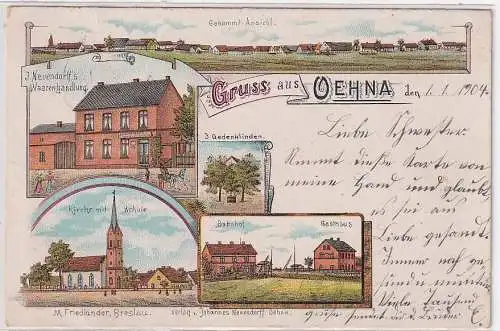 Gesammt-Ansicht.
J. Nevendorff's
Waarenhandlung.
Gruss aus OEHNA den 6. 1. 1904.
3 Gedenklinden.
Kirche mit Schule
Bahnhof Gasthaus
M. Friedländer, Breslau. Verlag v. Johannes Nevendorff Oehna.
Liebe Schwester
Nimmt diese Karte von
meine Hand und glaubt,
es sei aus
Liebe gesandt.
und
viele tausend
Grüße sendet